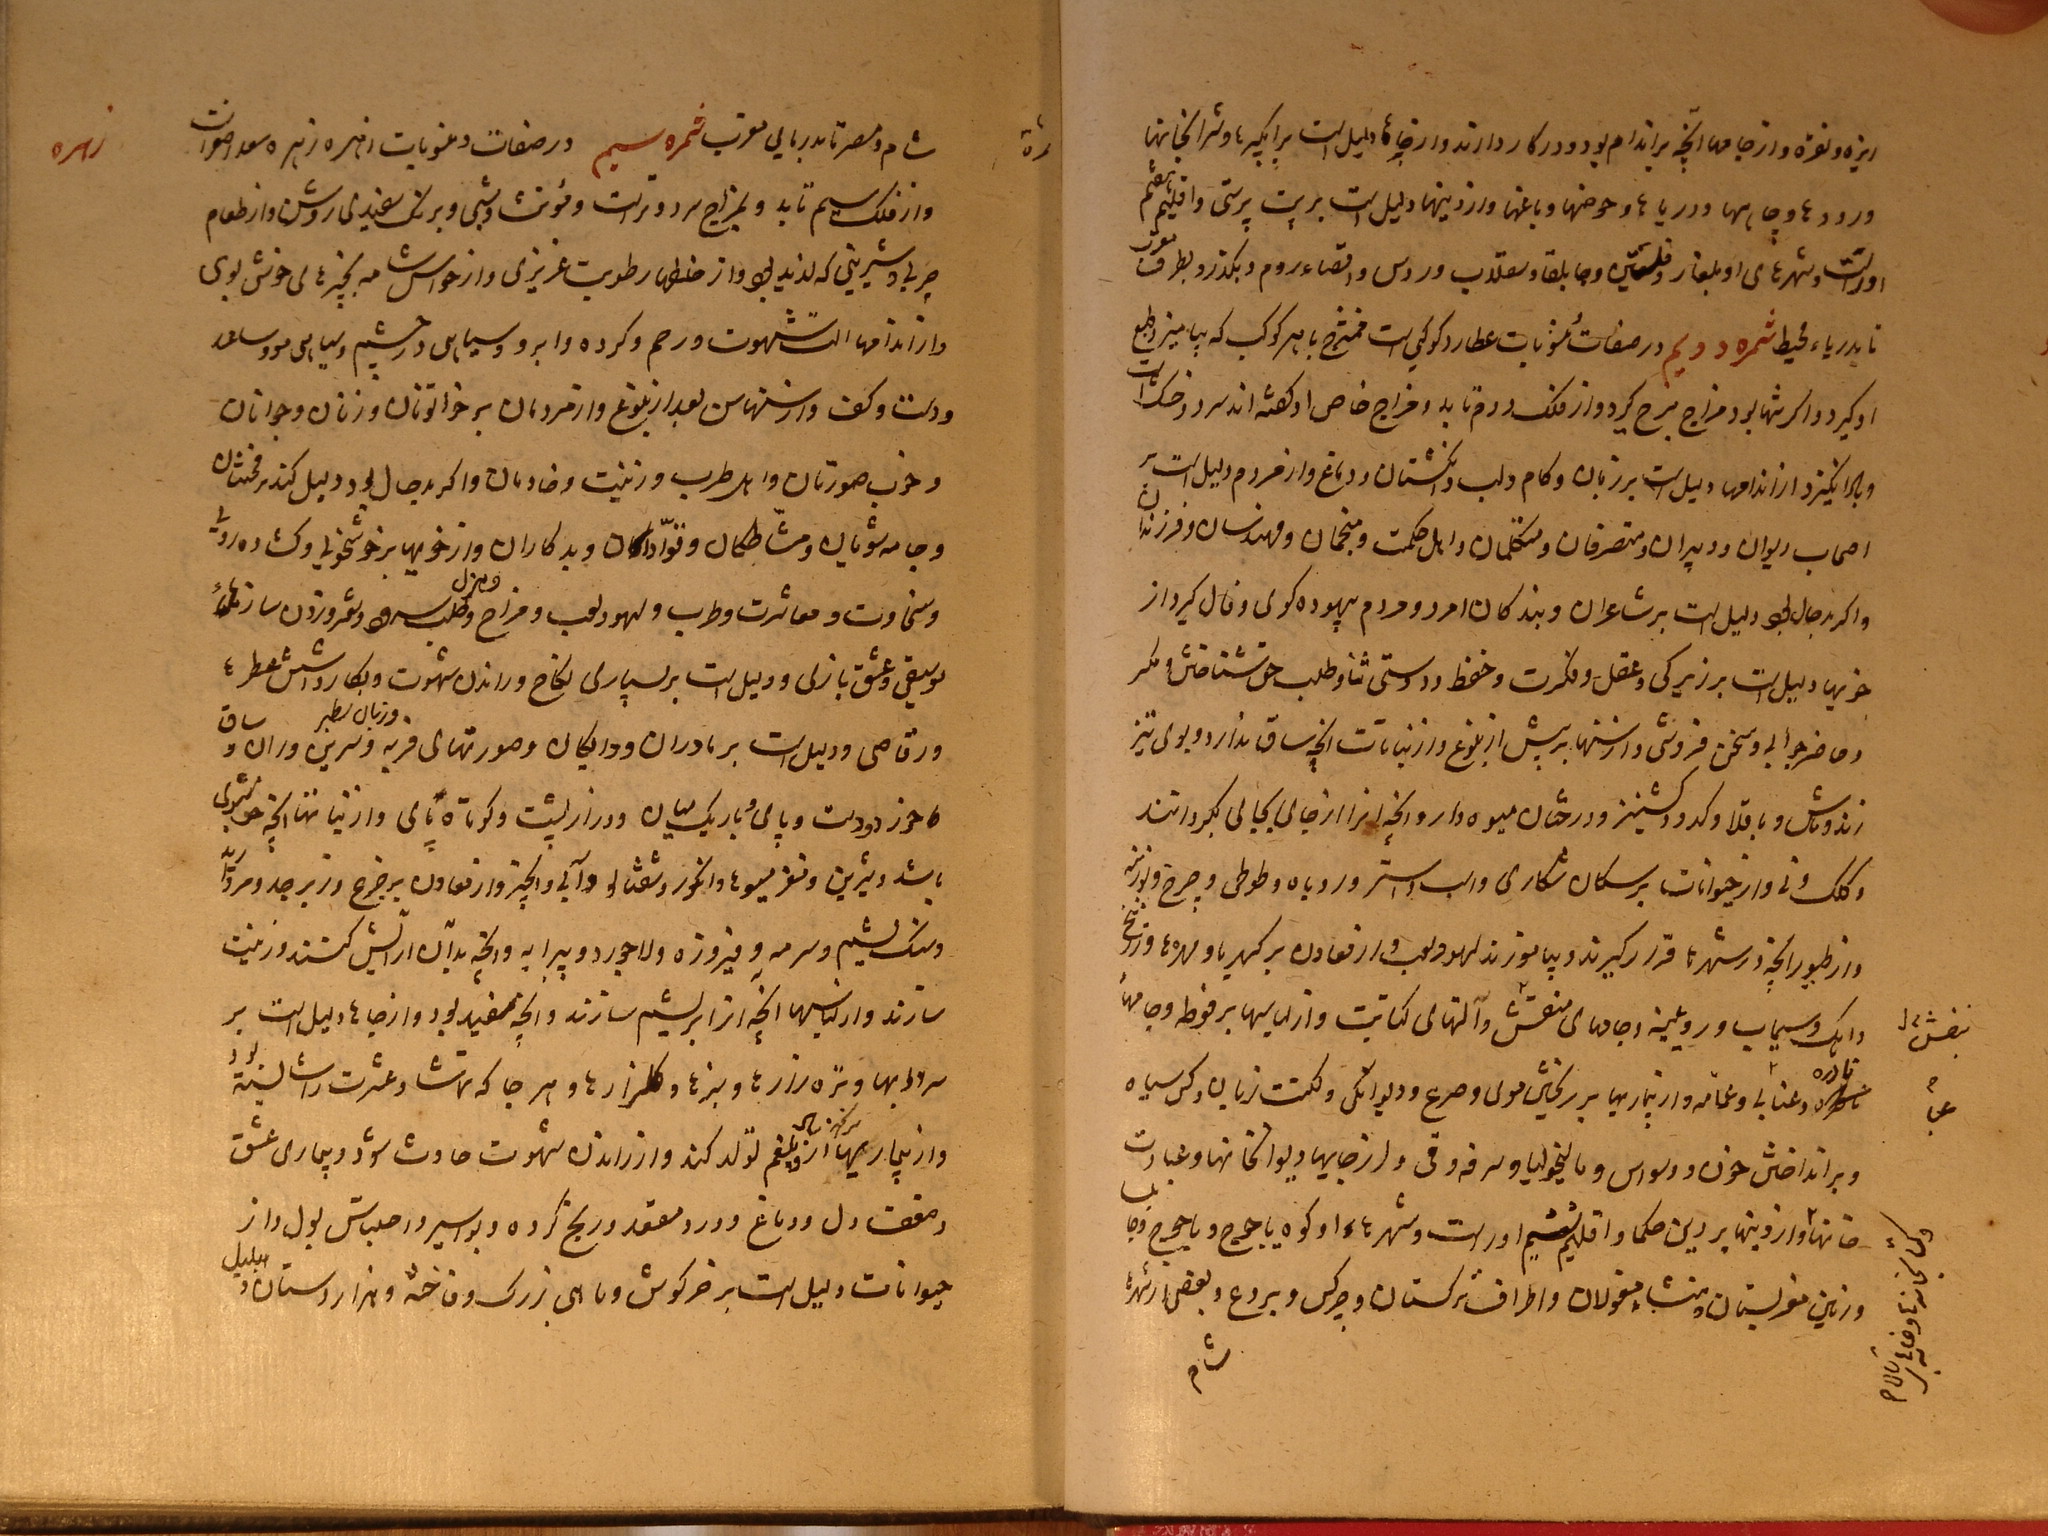 ریزه و نقره و از جامها آنچه بر اندام بود و در کار دارند و از جایها دلیل است بر آبگیرها و شرابخانها
و رودها و چاهها و دریاها و حوضها و باغها و از دینها دلیل است بر بت پرستی و اقلیم هفتم
او راست و شهرهای او بلغار و جابلقا و سقلاب و روس و اقصاء روم و بگذرد بطرف مغرب
تا بدریاء محیط ثمره دویم در صفات و منوبات عطارد کوکبی است ممتزج با هر کوکب که بیامیزد طبع
او گیرد و اگر تنها بود مزاج برج گیرد و از فلک دوم تابد و مزاج خاص او گفته اند سرد و خشک است
و باد انگیزد از اندامها دلیل است بر زبان و کام و لب و انگشتان و دماغ و از مردم دلیل است بر
اصحاب دیوان و دبیران و متصرفان و متکلمان و اهل حکمت و منجمان و مهندسان و فرزندان
و اگر بدحال بود دلیل است بر شاعران و بندگان امرد و مردم بیهوده گوی و فال گیر و از
خویها دلیل است بر زیرکی و عقل و فکرت و حفظ و دوستی ثنا و طلب حق شناختن و مکر
و حاضر جوابی و سخن فروشی و از سنها بر پیش از بلوغ و از نباتات آنچه ساق ندارد و بوی تیز
زند و ماش و باقلا و کدو و کشنیز و درختان میوه دار و آنچه آنرا از جایی بجایی بگردانند
و کلک و نی و از حیوانات بر سگان شکاری و اسب و استر و روباه و طوطی و چرخ و بوزینه
و از طیور آنچه در شهرها قرار گیرند و بیاموزند لهو و لعب و از معادن بر کهربا و مهره‌ها و زرنیخ
و آهک و سیماب و رویینه و جامهای منقش و آلتهای کتابت و از لباسها بر فوطه و جامهاء
نادره و عتابی و عمامه و از بیماریها بر ریختن موی و صرع و دیوانگی و لکنت زبان و کس سیاه
و بر انداختن خون و وسواس و مالیخولیا و سرفه و قی و از جایها دیوانخانها و عبادت
خانها و از دینها بر دین حکما و اقلیم ششم او راست و شهرهاء او کوه یاجوج و ماجوج و جا
و زمین مغولستان و منشاء مغولان و اطراف ترکستان و چرکس و بردع و بعضی از شهرهاء
شام
منقش
شام و مصر تا بدریای مغرب ثمره سیم در صفات و منوبات زهره زهره سعد اصغر است
زهره
و از فلک سیم تابد و بمزاج سرد و تر است و مؤنث و شبی و برنگ سفیدی روشن و از طعام
چربی و شیرینی که لذیذ بود و از خلطها رطوبت غریزی و از حواس شامه بچیزهای خوش بوی
و از اندامها آلت شهوت و رحم و گرده و ابرو و سیاهی و از چشم و سیاهی مو و ساعد
و دست و کف و از سنها سن بعد از بلوغ و از مردمان بر خواتونان و زنان و جوانان
و خوب صورتان و اهل طرب و زینت و خادمان و اگر بدحال بود دلیل کند بر مخنثان
و جامه شویان و مشاطگان و قوادگان و بدکاران و از خویها بر خوشخویی و گشاده رویی
و سخاوت و معاشرت و طرب و لهو و لعب و مزاح و هزل و طلب سرود و شعر و زدن سازهاء
موسیقی و عشق بازی و دلیل است بر بسیاری نکاح و راندن شهوت و بکار داشتن عطرها
و رقاصی و دلیل است بر مادران و دایگان و صورتهای فربه و سرین و ران و ساق
و دست و پای و باریک میان و دراز پشت و کوتاه پای و از نباتها آنچه خوشبوی
باشد و شیرین و مغز میوها و انگور و شفتالو و آبی و انجیر و از معادن بر جزع و زبرجد و مروارید
و سنگ یشم و سرمه و فیروزه و لاجورد و پیرایه و آنچه بدان آرایش کنند و زینت
سازند و از لباسها آنچه از ابریشم سازند و آنچه سفید بود و از جایها دلیل است بر
سردابها و نزه زارها و سبزها و گلزارها و هر جا که تماشا و عشرت را شایسته بود
و از بیماریها از بلغم تولد کند و از راندن شهوت حادث شود و بیماری عشق
و ضعف دل و دماغ و درد مقعد و رنج گرده و بواسیر و احتباس بول و از
حیوانات دلیل است بر خرگوش و ماهی بزرگ و فاخته و هزاردستان و بلبل